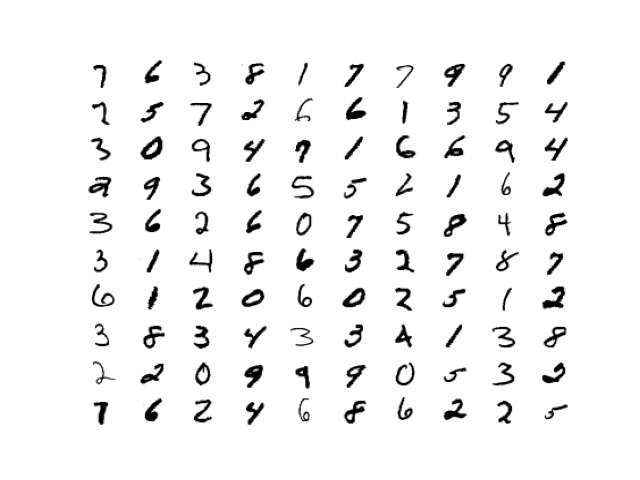 7 6 3 8 1 7 7 9 9 1
7 5 7 2 6 6 1 3 5 4
3 0 9 4 7 1 6 6 9 4
9 9 3 6 5 5 2 1 6 2
3 6 2 6 0 7 5 8 4 8
3 1 4 8 6 3 2 7 8 7
6 1 2 0 6 0 2 5 1 2
3 8 3 4 3 3 4 1 3 8
2 2 0 9 9 9 0 5 3 2
7 6 2 4 6 8 6 2 2 5